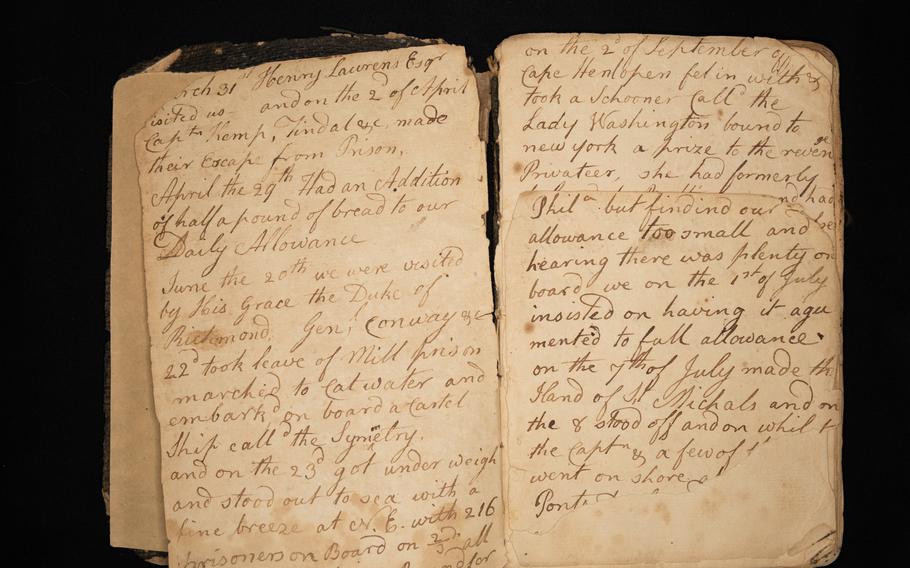 rch 31st Henry Laurens Esqr
isited us and on the 2d of April
Captn Kemp, Tindal &c, made
their Escape from Prison,
April the 29th Had an Addition
of half a pound of bread to our
Daily Allowance
June the 20th we were visited
by His Grace the Duke of
Richmond, Genl Conway &c
22d took leave of Mill prison
marched to Catwater and
embarkd on board a Cartel
Ship calld the Symetry.
and on the 23d got under weigh
and stood out to sea with a
fine breeze at N. E. with 216
prisoners on Board on 2d all
and for
on the 2d of September of
Cape Henlopen fel in with &
took a Schooner Calld the
Lady Washington bound to
new york a prize to the revenge
Privateer, she had formerly
nd had
Phila but findind our
allowance too small and
hearing there was plenty on
board we on the 1st of July
insisted on having it agu
mented to full allowance
on the 7th of July made th
Iland of St Michals and on
the 8 stood off and on whilst
the Captn & a few of
went on shore
Pont